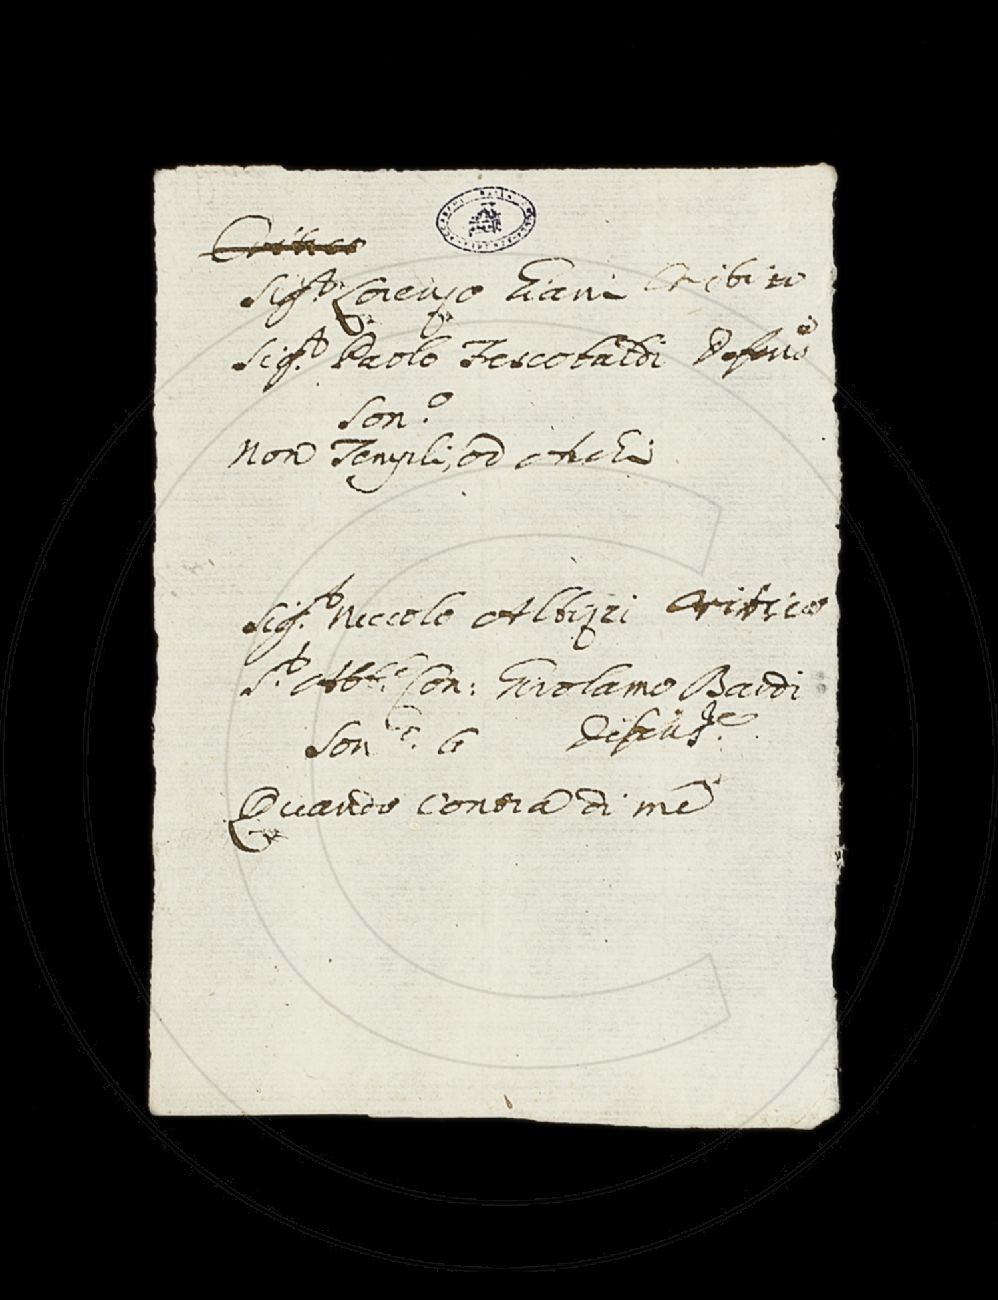 Critico
Sig.r Lorenzo Giani Critico
Sig.r Paolo Fescobaldi Defens.e
Son.o
Non Templi, od Archi
Sig.r Niccolo Albizi Critico
S.r Abb.e Con: Girolamo Bardi
Son. 6 Difens.e
Quando Contra di me